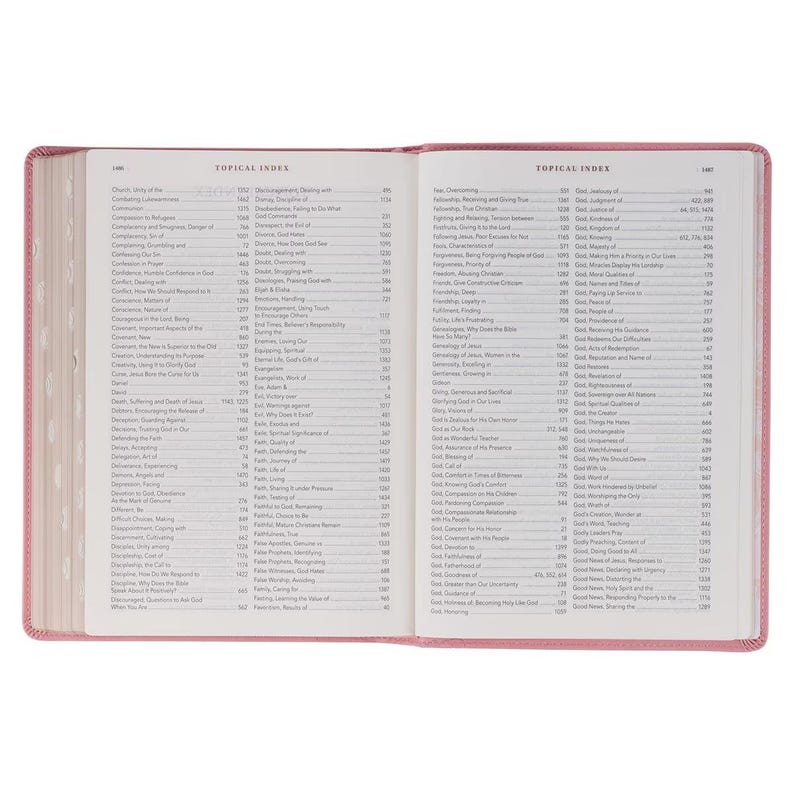 1486
TOPICAL INDEX
Church, Unity of the 1352
Combating Lukewarmness 1462
Communion 1315
Compassion to Refugees 1068
Complacency and Smugness, Danger of 766
Complacency, Sin of 1001
Complaining, Grumbling and 72
Confessing Our Sin 1446
Confession in Prayer 463
Confidence, Humble Confidence in God 176
Conflict, Dealing with 1256
Conflict, How We Should Respond to 263
Conscience, Matters of 1294
Conscience, Nature of 1277
Courageous in the Lord, Being 207
Covenant, Important Aspects of the 418
Covenant, New 860
Covenant, the New is Superior to the Old 1327
Creation, Understanding Its Purpose 539
Creativity, Using It to Glorify God 93
Curse, Jesus Bore the Curse for Us 1341
Daniel 953
David 279
Death, Suffering and Death of Jesus 1143, 1225
Debtors, Encouraging the Release of 184
Deception; Guarding Against 1102
Decisions, Trusting God in Our 661
Defending the Faith 1457
Delays, Accepting 473
Delegation, Art of 74
Deliverance, Experiencing 58
Demons, Angels and 1470
Depression, Facing 343
Devotion to God, Obedience
As the Mark of Genuine 276
Different, Be 174
Difficult Choices, Making 849
Disappointment, Coping with 510
Discernment, Cultivating 662
Disciples, Unity among 1224
Discipleship, Cost of 1176
Discipleship, the Call to 1174
Discipline, How Do We Respond to 1422
Discipline, Why Does the Bible
Speak About It Positively? 665
Discouraged, Questions to Ask God
When You Are 562
Discouragement, Dealing with 495
Dismay, Discipline of 1134
Disobedience, Failing to Do What
God Commands 231
Disrespect, the Evil of 352
Divorce, God Hates 1060
Divorce, How Does God See 1095
Doubt, Dealing with 1230
Doubt, Overcoming 765
Doubt, Struggling with 591
Doxologies, Praising God with 586
Elijah & Elisha 344
Emotions, Handling 721
Encouragement, Using Touch
to Encourage Others 1117
End Times, Believer's Responsibility
During the 1138
Enemies, Loving Our 1073
Equipping, Spiritual 1353
Eternal Life, God's Gift of 1383
Evangelism 357
Evangelists, Work of 1245
Eve, Adam & 6
Evil, Victory over 54
Evil, Warnings against 1017
Evil, Why Does It Exist? 481
Exile, Exodus and 1436
Exile, Spiritual Significance of 367
Faith, Quality of 1429
Faith, Defending the 1457
Faith, Journey of 1419
Faith, Life of 1420
Faith, Living 1033
Faith, Sharing It under Pressure 1267
Faith, Testing of 1434
Faithful to God, Remaining 321
Faithful, Choice to Be 227
Faithful, Mature Christians Remain 1109
Faithfulness, True 865
False Apostles, Genuine vs 1333
False Prophets, Identifying 188
False Prophets, Recognizing 151
False Witnesses, God Hates 688
False Worship, Avoiding 106
Family, Caring for 1387
Fasting, Learning the Value of 965
Favoritism, Results of 40
TOPICAL INDEX
1487
Fear, Overcoming 551
Fellowship, Receiving and Giving True 1361
Fellowship, True Christian 1238
Fighting and Relaxing, Tension between 555
Firstfruits, Giving It to the Lord 120
Following Jesus, Poor Excuses for Not 1165
Fools, Characteristics of 571
Forgiveness, Being Forgiving People of God 1093
Forgiveness, Priority of 1118
Freedom, Abusing Christian 1282
Friends, Give Constructive Criticism 696
Friendship, Deep 281
Friendship, Loyalty in 285
Fulfillment, Finding 708
Futility, Life's Frustrating 704
Genealogies, Why Does the Bible
Have So Many? 381
Genealogy of Jesus 1066
Genealogy of Jesus, Women in the 1067
Generosity, Excelling in 1332
Gentleness, Growing in 678
Gideon 237
Giving, Generous and Sacrificial 1137
Glorifying God in Our Lives 1312
Glory, Visions of 909
God is Zealous for His Own Honor 171
God as Our Rock 312, 548
God as Wonderful Teacher 760
God, Assurance of His Presence 630
God, Blessing of 194
God, Call of 735
God, Comfort in Times of Bitterness 256
God, Knowing God's Comfort 1325
God, Compassion on His Children 792
God, Pardoning Compassion 544
God, Compassionate Relationship
with His People 91
God, Concern for His Honor 21
God, Covenant with His People 18
God, Devotion to 1399
God, Faithfulness of 896
God, Fatherhood of 1074
God, Goodness of 476, 552, 614
God, Greater than Our Uncertainty 238
God, Guidance of 71
God, Holiness of; Becoming Holy Like God 108
God, Honoring 1059
God, Jealousy of 941
God, Judgment of 422, 889
God, Justice of 64, 515, 1474
God, Kindness of 774
God, Kingdom of 1132
God, Knowing 612, 776, 834
God, Majesty of 406
God, Making Him a Priority in Our Lives 298
God, Miracles Display His Lordship 70
God, Moral Qualities of 175
God, Names and Titles of 59
God, Paying Lip Service to 762
God, Peace of 757
God, People of 177
God, Providence of 257
God, Receiving His Guidance 600
God Redeems Our Difficulties 259
God, Acts of Redemption 67
God, Reputation and Name of 143
God Restores 358
God, Revelation of 1408
God, Righteousness of 198
God, Sovereign over All Nations 744
God, Spiritual Qualities of 649
God, the Creator 4
God, Things He Hates 666
God, Unchangeable 602
God, Uniqueness of 786
God, Watchfulness of 639
God, Why We Should Desire 589
God With Us 1043
God, Word of 867
God, Work Hindered by Unbelief 1086
God, Worshiping the Only 395
God, Wrath of 593
God's Creation, Wonder at 531
God's Word, Teaching 446
Godly Leaders Pray 453
Godly Preaching, Content of 1395
Good, Doing Good to All 1347
Good News of Jesus, Responses to 1260
Good News, Declaring with Urgency 1271
Good News, Distorting the 1338
Good News, Holy Spirit and the 1302
Good News, Responding Properly to the 1116
Good News, Sharing the 1289